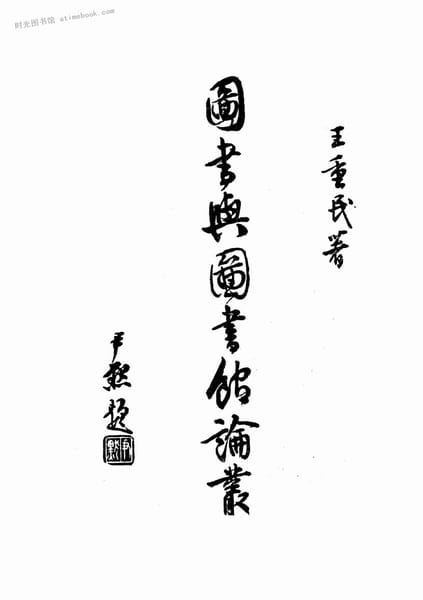 时光图书馆 atimebook.com
王重民著
圖書與圖書館論叢
尹默題